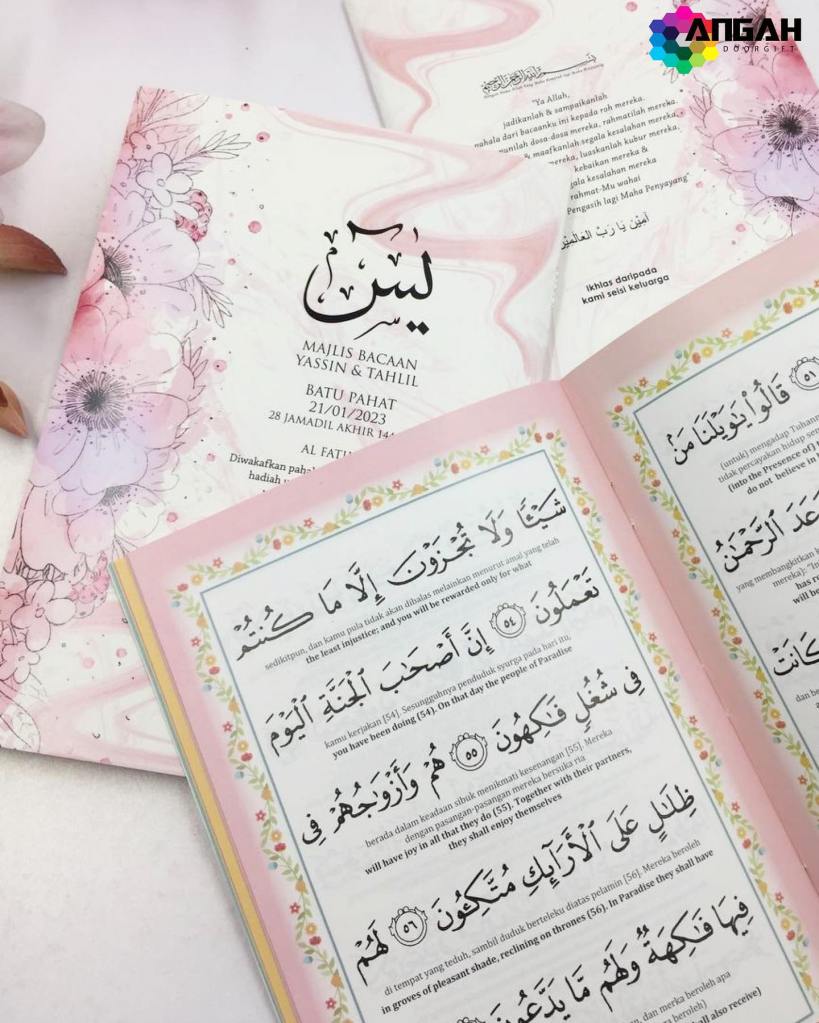 ANGAH
DOORGIFT
"Ya Allah,
jadikanlah & sampaikanlah
pahala dari bacaanku ini kepada roh mereka.
dosa-dosa mereka, rahmatilah mereka.
& maafkanlah segala kesalahan mereka,
mereka, luaskanlah kubur mereka,
kebaikan mereka &
kesalahan mereka
rahmat-Mu wahai
Pengasih lagi Maha Penyayang"
آمِيْن يَا رَبَّ الْعَالَمِيْن
Ikhlas daripada
kami seisi keluarga
يس
MAJLIS BACAAN
YASSIN & TAHLIL
BATU PAHAT
21/01/2023
28 JAMADIL AKHIR
AL
Diwakafkan
hadiah
شَيْـًٔا وَلَا تُجْزَوْنَ إِلَّا مَا كُنتُمْ
sedikitpun, dan kamu pula tidak akan dibalas melainkan menurut amal yang telah
the least injustice; and you will be rewarded only for what
تَعْمَلُونَ ٥٤ إِنَّ أَصْحَٰبَ ٱلْجَنَّةِ ٱلْيَوْمَ
kamu kerjakan [54]. Sesungguhnya penduduk syurga pada hari itu,
you have been doing (54). On that day the people of Paradise
فِى شُغُلٍ فَٰكِهُونَ ٥٥ هُمْ وَأَزْوَٰجُهُمْ فِى
berada dalam keadaan sibuk menikmati kesenangan [55]. Mereka
dengan pasangan-pasangan mereka bersuka ria
will have joy in all that they do (55). Together with their partners,
they shall enjoy themselves
ظِلَٰلٍ عَلَى ٱلْأَرَآئِكِ مُتَّكِـُٔونَ ٥٦ لَهُمْ
di tempat yang teduh, sambil duduk berteleku diatas pelamin [56]. Mereka beroleh
in groves of pleasant shade, reclining on thrones (56). In Paradise they shall have
فِيهَا فَٰكِهَةٌ وَلَهُم مَّا يَدَّعُونَ
dan merka beroleh apa
mereka beroleh)
shall also receive)
٥١ قَالُوا۟ يَٰوَيْلَنَا مَنۢ
(untuk) mengadap
tidak percayakan hidup
(into the Presence of)
do not believe in
وَعَدَ ٱلرَّحْمَٰنُ
yang membangkitkan
mereka): "In
has
will be
كَانَتْ
dan